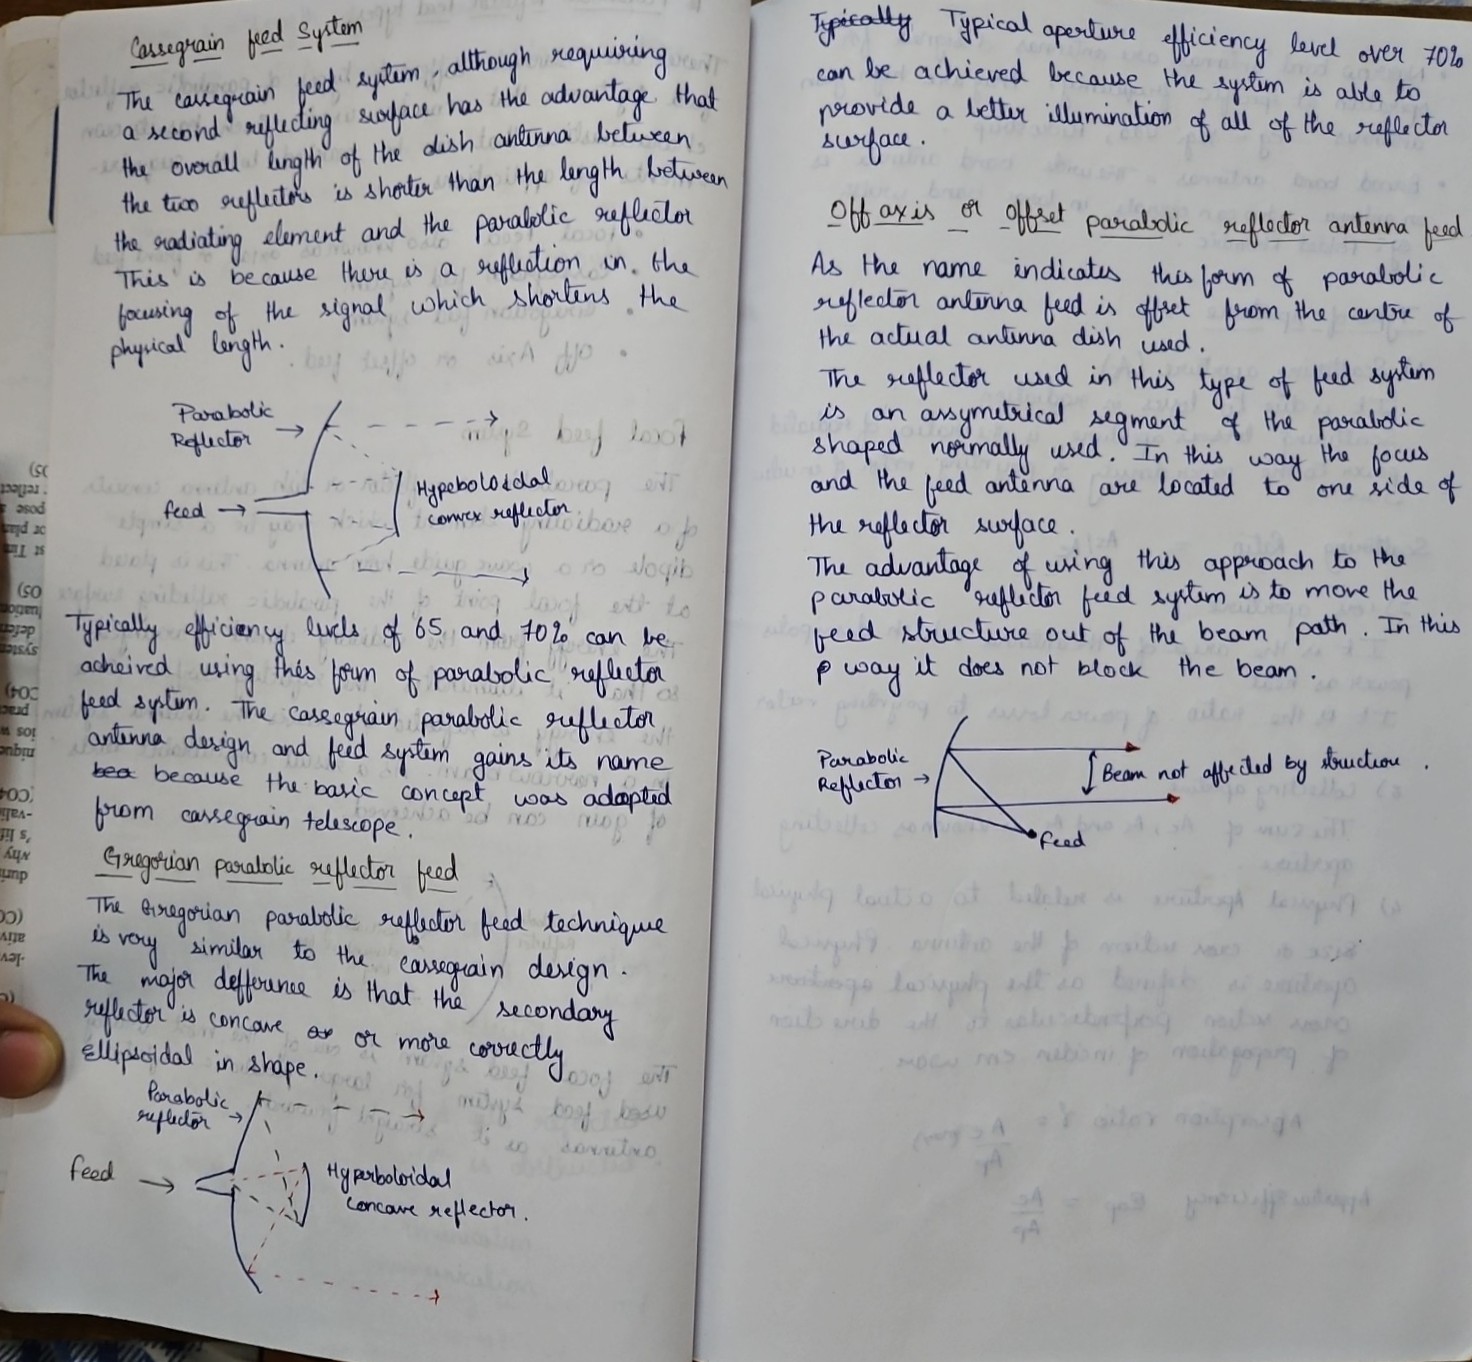 Cassegrain feed System
The cassegrain feed system, although requiring
a second reflecting surface has the advantage that
the overall length of the dish antenna between
the two reflectors is shorter than the length between
the radiating element and the parabolic reflector
This is because there is a reflection in the
focusing of the signal which shortens the
physical length.
Parabolic
Reflector →
feed →
Hypeboloidal
convex reflector
Typically efficiency levels of 65 and 70% can be
acheived using this form of parabolic reflector
feed system. The cassegrain parabolic reflector
antenna design and feed system gains its name
bea because the basic concept was adopted
from cassegrain telescope.
Gregorian parabolic reflector feed
The Gregorian parabolic reflector feed technique
is very similar to the cassegrain design.
The major defference is that the secondary
reflector is concave or or more correctly
Ellipsoidal in shape.
Parabolic
reflector →
feed →
Hyperboloidal
concave reflector.
Typically Typical aperture efficiency level over 70%
can be achieved because the system is able to
provide a better illumination of all of the reflector
surface.
Off axis or offset parabolic reflector antenna feed
As the name indicates this form of parabolic
reflector antenna feed is offset from the centre of
the actual antenna dish used.
The reflector used in this type of feed system
is an assymetrical segment of the parabolic
shaped normally used. In this way the focus
and the feed antenna are located to one side of
the reflector surface.
The advantage of using this approach to the
parabolic reflector feed system is to move the
feed structure out of the beam path. In this
p way it does not block the beam.
Parabolic
Reflector →
Beam not affected by struction.
feed